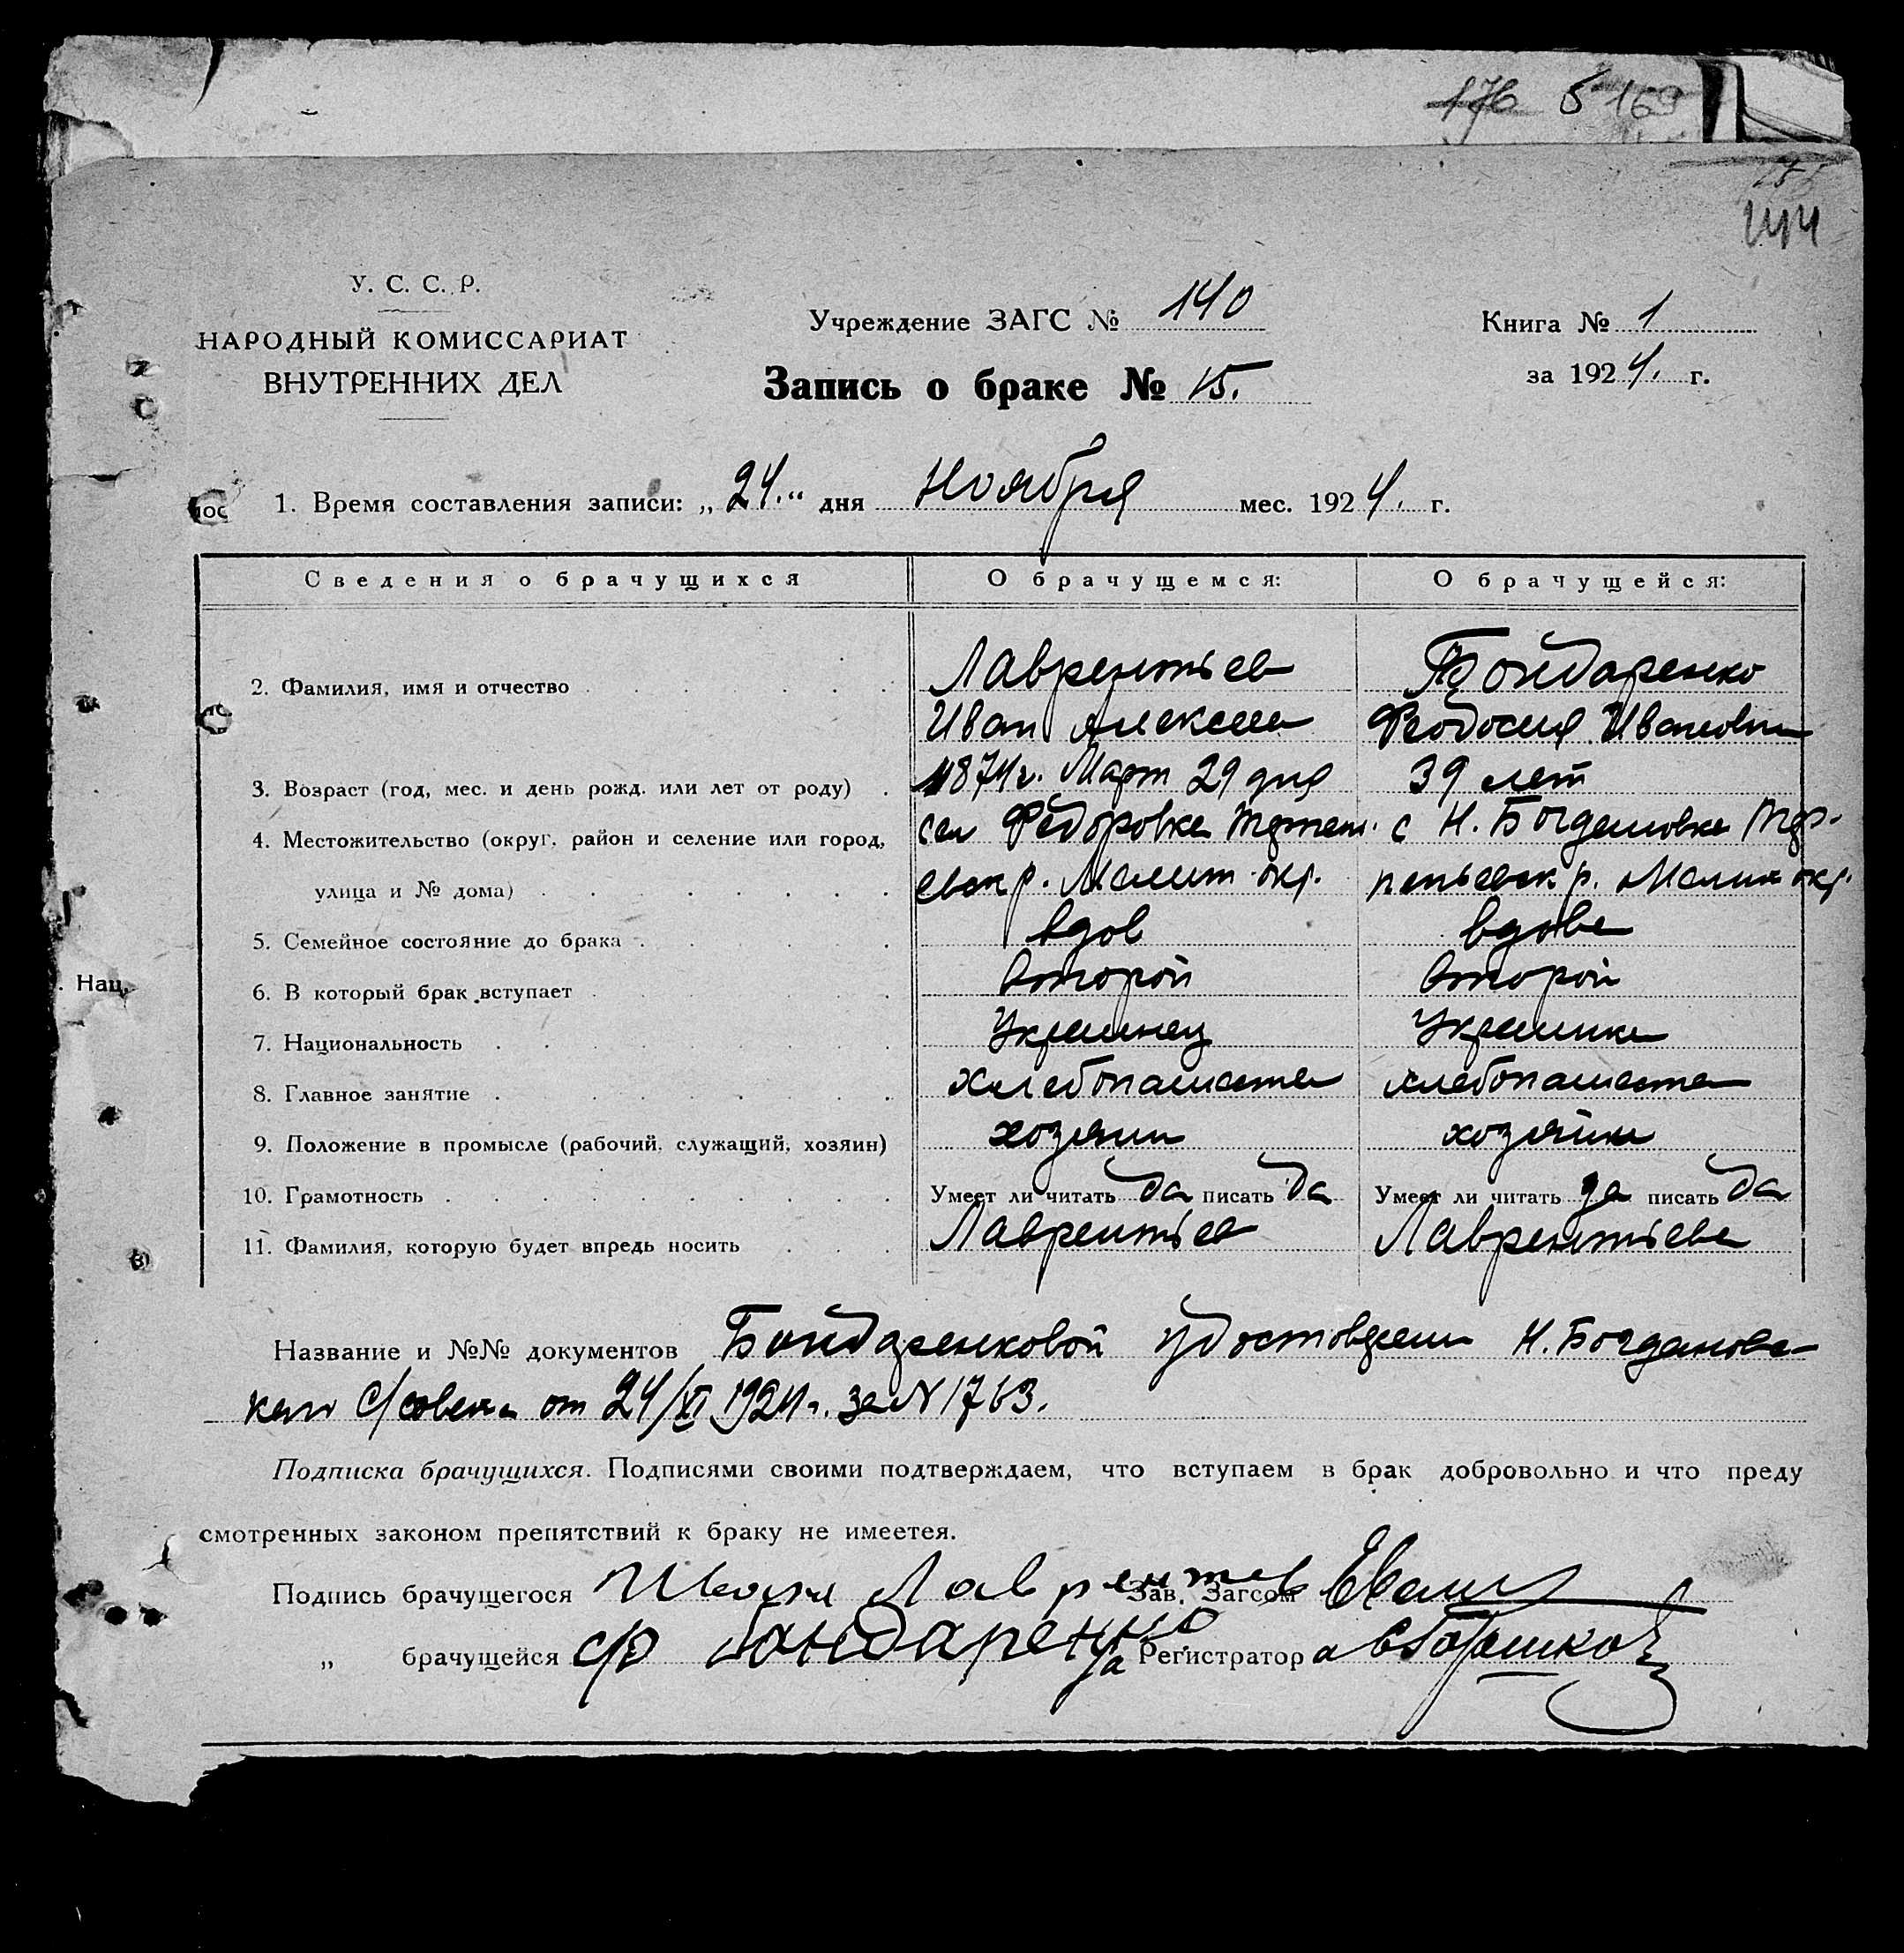 176 5 169
144
У. С. С. Р.
НАРОДНЫЙ КОМИССАРИАТ
ВНУТРЕННИХ ДЕЛ
Учреждение ЗАГС № 140
Книга № 1
Запись о браке № 15.
за 1924. г.
1. Время составления записи: „24.“ дня Ноября мес. 1924. г.
Сведения о брачущихся О брачущемся: О брачущейся:
2. Фамилия, имя и отчество Лаврентьев Бондаренко
Иван Алексеев Феодосия Ивановна
3. Возраст (год, мес. и день рожд. или лет от роду) 1874 г. Март 29 дня 39 лет
4. Местожительство (округ, район и селение или город, сел Федоровка с Н. Богдановка
улица и № дома) евск р. Мелит. окр. пеньевск р. Мелит окр.
5. Семейное состояние до брака вдов вдова
6. В который брак вступает второй второй
. Нац.
7. Национальность Украинец Украинка
8. Главное занятие хлебопашество хлебопашество
9. Положение в промысле (рабочий, служащий, хозяин) хозяин хозяйка
10. Грамотность Умеет ли читать да писать да Умеет ли читать да писать да
11. Фамилия, которую будет впредь носить Лаврентьев Лаврентьева
Название и №№ документов Бондаренковой удостоверение Н. Богдановс-
кого С/совета от 24/XI 1924 г. за N 1763.
Подписка брачущихся. Подписями своими подтверждаем, что вступаем в брак добровольно и что преду
смотренных законом препятствий к браку не имеетея.
Подпись брачущегося Иван Лаврентев Зав. Загсом
„ брачущейся Ф Бандаренко Регистратор